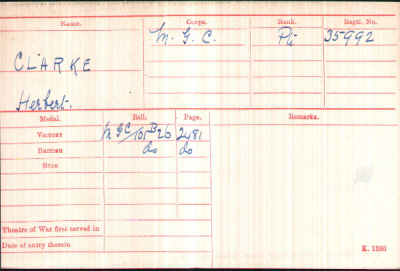 Name. Corps. Rank. Regtl. No.
CLARKE M. G. C. Pte 35992
Herbert.
Medal. Roll. Page. Remarks.
VICTORY M GC/101 B26 2481
BRITISH do do
STAR
Theatre of War first served in
Date of entry therein
K. 1380